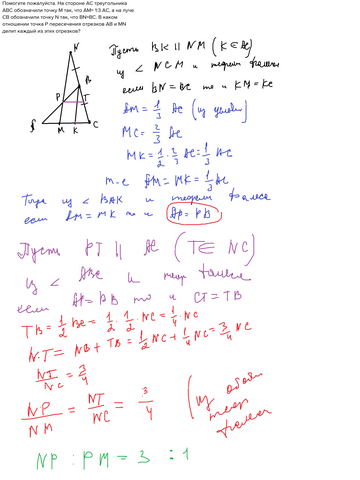 Помогите пожалуйста. На стороне AC треугольника
ABC обозначили точку M так, что AM=1\3 AC, а на луче
CB обозначили точку N так, что BN=BC. В каком
отношении точка P пересечения отрезков AB и MN
делит каждый из этих отрезков?
N
B
P
T
A
M
K
C
Пусть BK || NM (K ∈ AC)
из < NCM и теорем Фалеса
если BN = BC то и KM = KC
AM = 1/3 AC (из условия)
MC = 2/3 AC
MK = 1/2 · 2/3 AC = 1/3 AC
т-е AM = MK = 1/3 AC
Тогда из < BAK и теорем Фалеса
если AM = MK то и AP = PB
Пусть PT || AC (T ∈ NC)
из < ABC и теор Фалеса
если AP = PB то и CT = TB
TB = 1/2 BC = 1/2 · 1/2 · NC = 1/4 NC
NT = NB + TB = 1/2 NC + 1/4 NC = 3/4 NC
NT/NC = 3/4
NP/NM = NT/NC = 3/4 (из обобщ теор Фалеса
NP : PM = 3 : 1